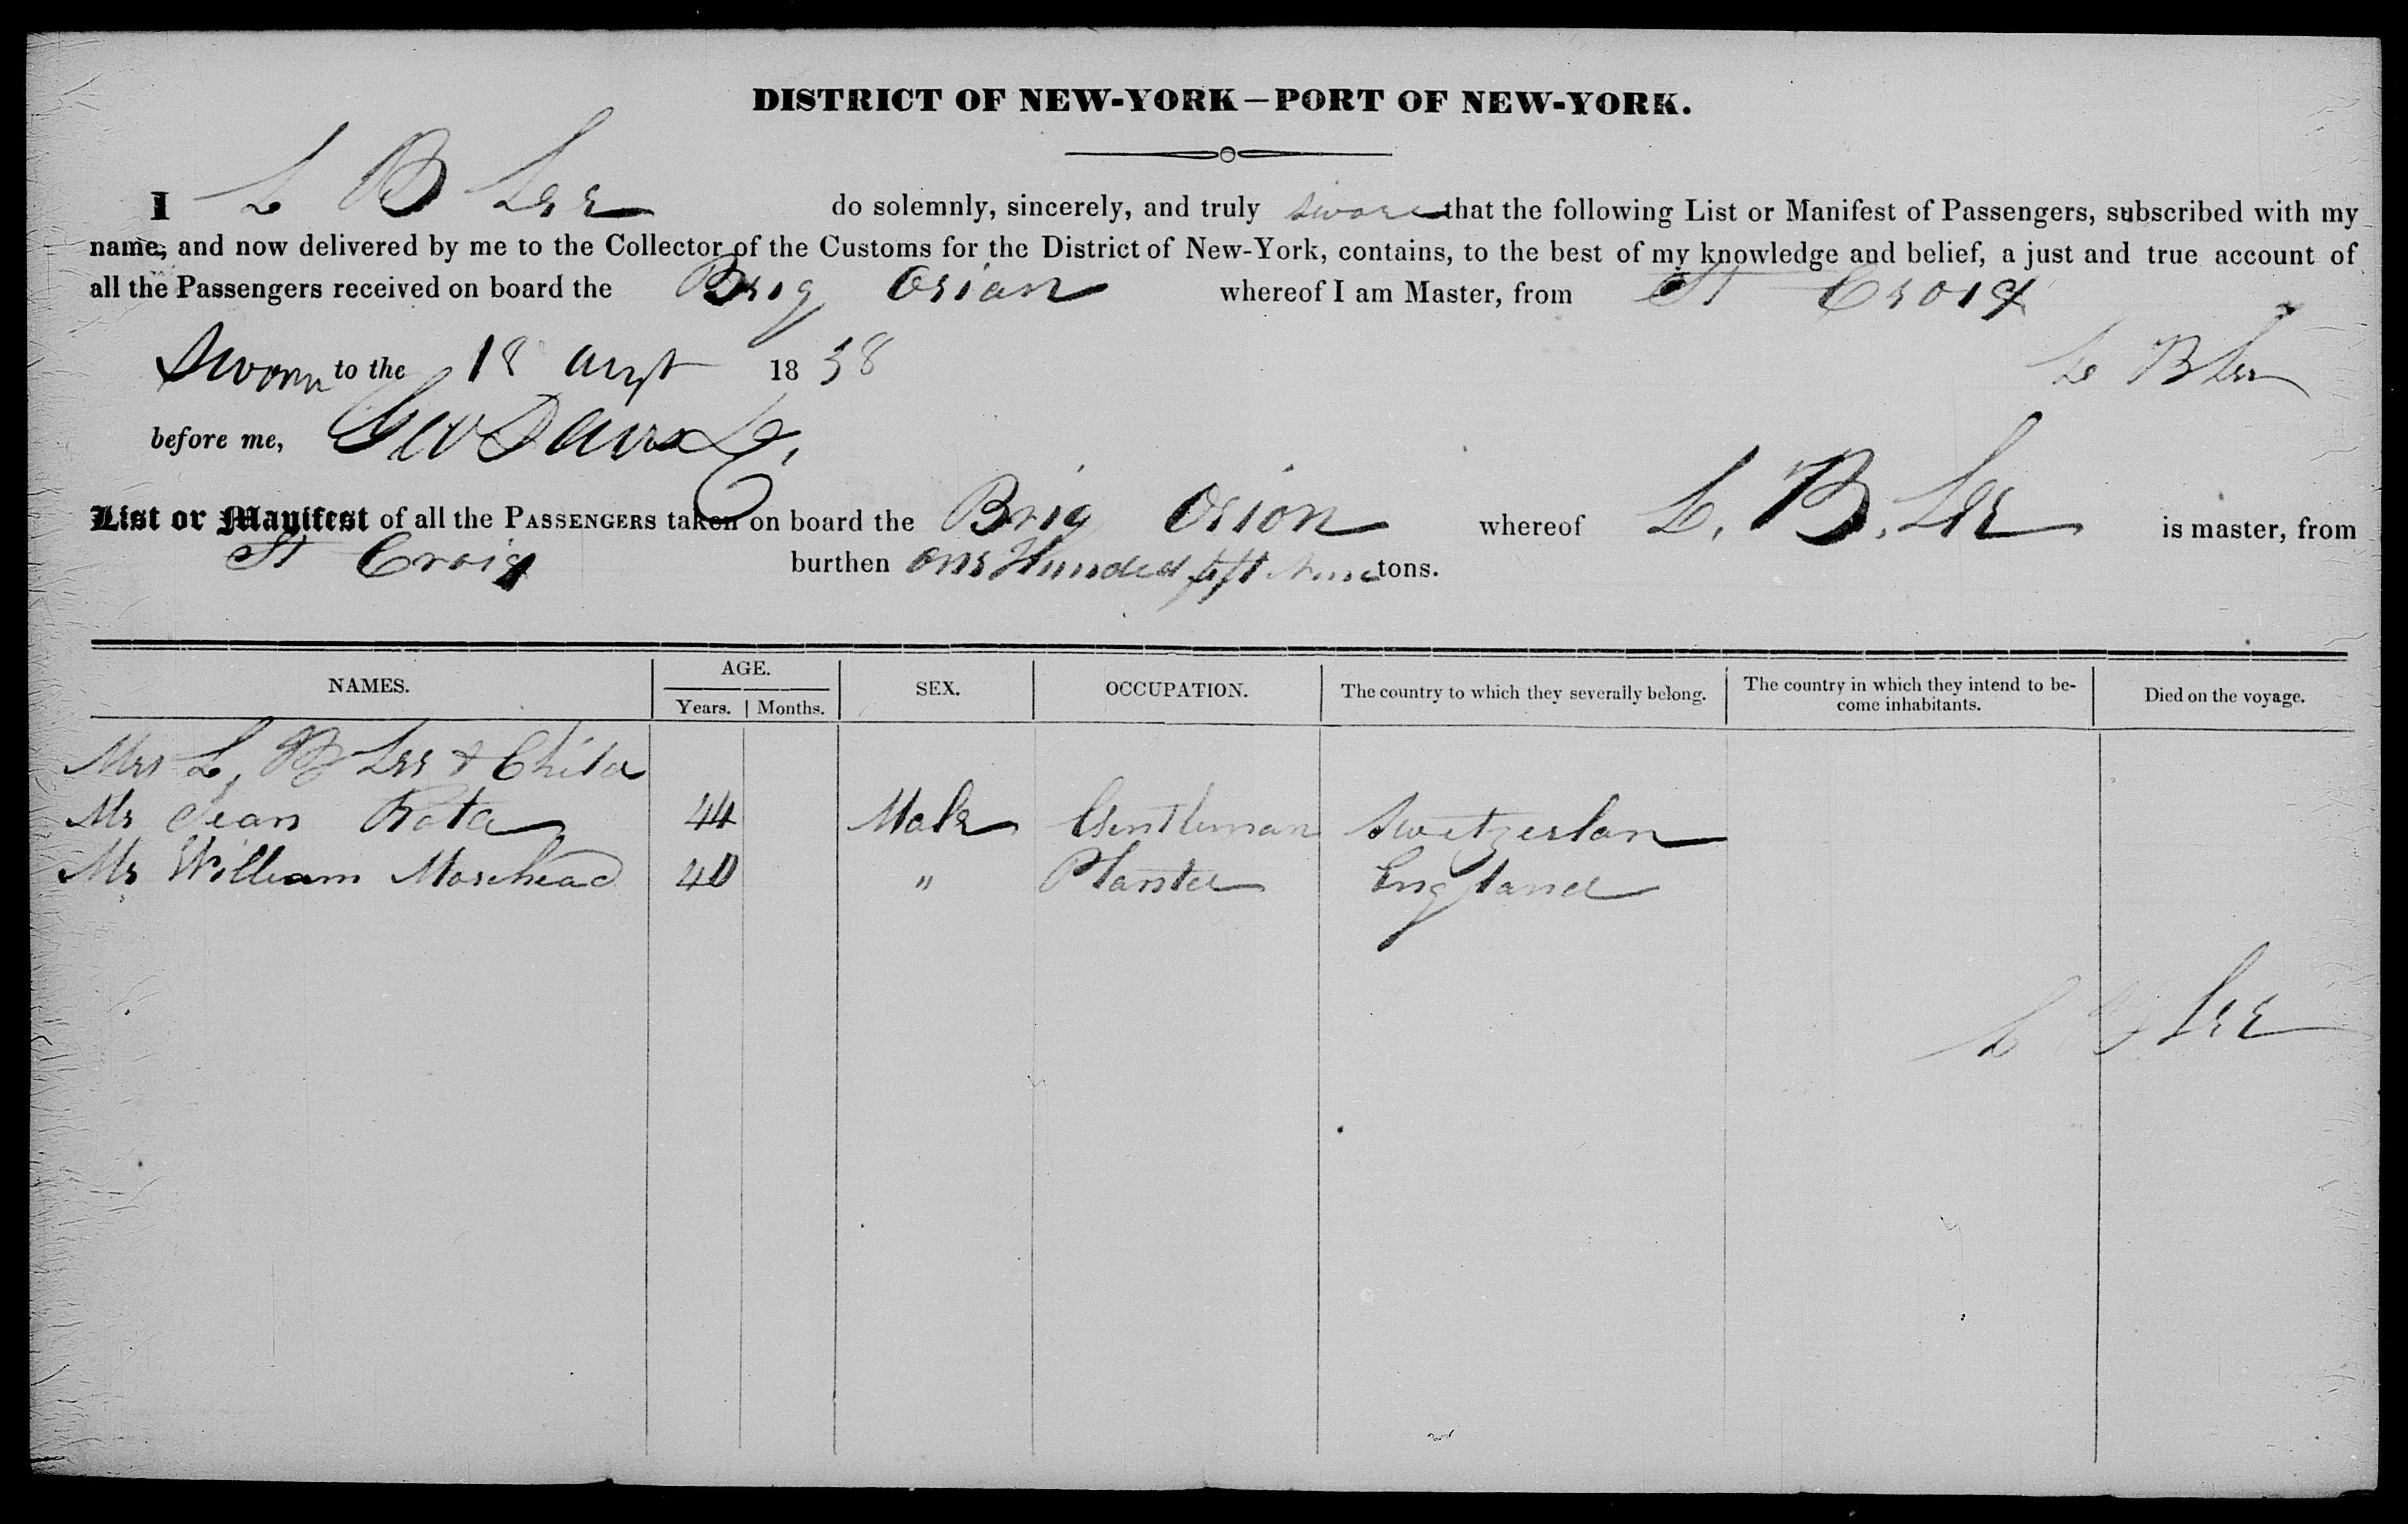 DISTRICT OF NEW-YORK—PORT OF NEW-YORK.
I L B Lee do solemnly, sincerely, and truly swore that the following List or Manifest of Passengers, subscribed with my
name, and now delivered by me to the Collector of the Customs for the District of New-York, contains, to the best of my knowledge and belief, a just and true account of
all the Passengers received on board the Brig Orian whereof I am Master, from St Croix
Sworn to the 18 augt 1838 L B Lee
before me, Geo Davis
List or Manifest of all the PASSENGERS taken on board the Brig Orion whereof L. B. Lee is master, from
St Croix burthen one Hunded fift Nine tons.
NAMES. AGE. Years. Months. SEX. OCCUPATION. The country to which they severally belong. The country in which they intend to be- come inhabitants. Died on the voyage.
Mrs L, B Lee & Child
Mr Jean Rota 44 Male Gentleman Switzerlan
Mr William Morehead 40 " Planter England
L B Lee